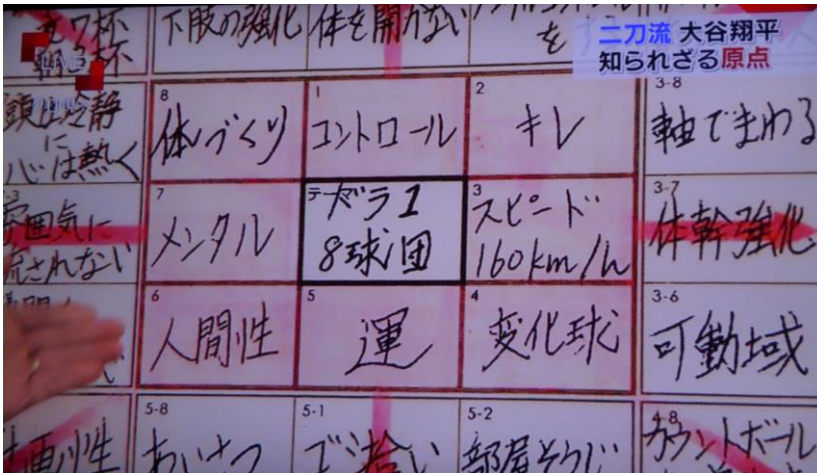 二刀流 大谷翔平
知られざる原点
LIVE
朝3杯
下肢の強化
体を開かない
頭は冷静
に
心は熱く
8
体づくり
1
コントロール
2
キレ
3-8
軸でまわる
雰囲気に
流されない
7
メンタル
テーマ
ドラ1
8球団
3
スピード
160km/h
3-7
体幹強化
6
人間性
5
運
4
変化球
3-6
可動域
計画性
5-8
あいさつ
5-1
ゴミ拾い
5-2
部屋そうじ
4-8
カウントボール